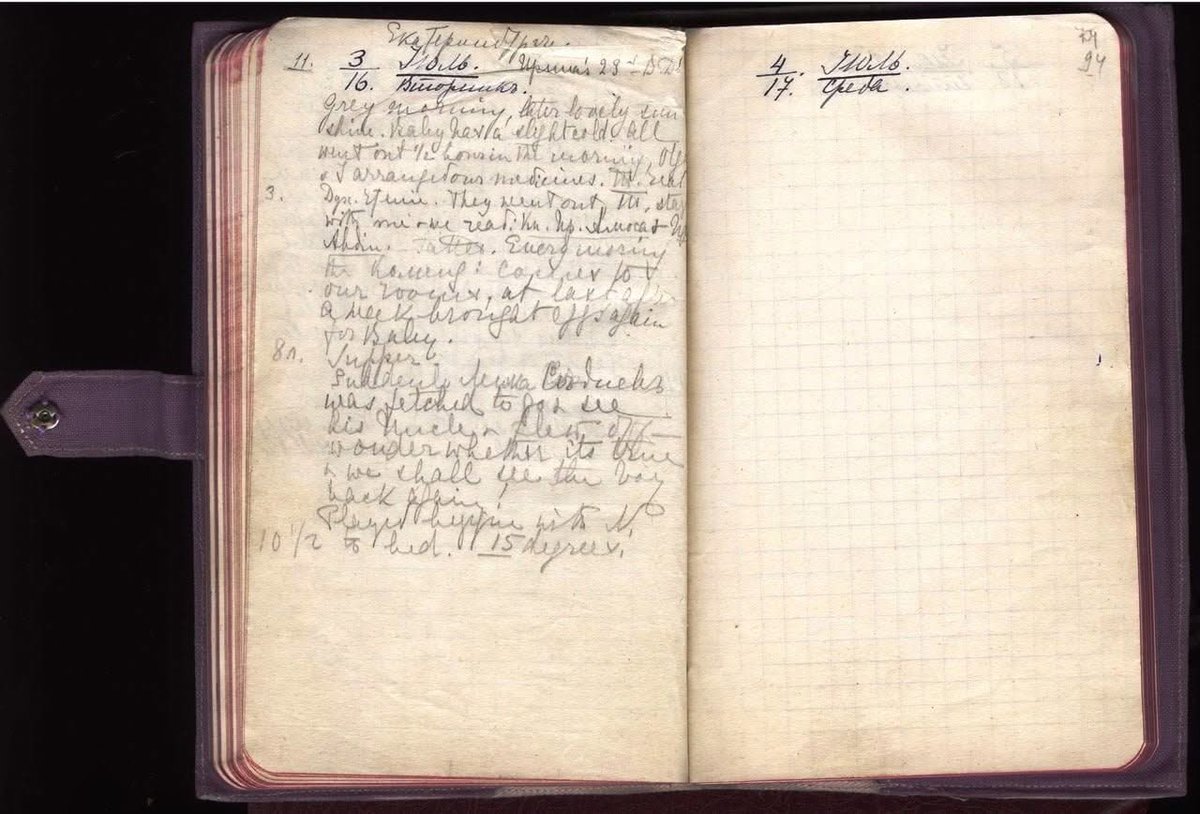 Екатеринбург.
11. 3/16. Июль. Ирина's 23rd B.D.
Вторникъ.
Grey morning, later lovely sun
shine. Baby has a slight cold. All
went out ½ hour in the morning, Olga
& I arranged our medicines. T. read
3. Дух. чтение. They went out, T. stayed
with me & we read: Кн. пр. Амоса &
Авдія. Tatted. Every morning
the Komend: comes to
our rooms, at last after
a week brought eggs again
for Baby.
8h. Supper
Suddenly Лёнька Седневъ
was fetched to go & see
his Uncle & flew off –
wonder whether its true
& we shall see the boy
back again!
Played bezique with N.
10 ½ to bed. 15 degrees.
4/17. Июль.
Среда.
94